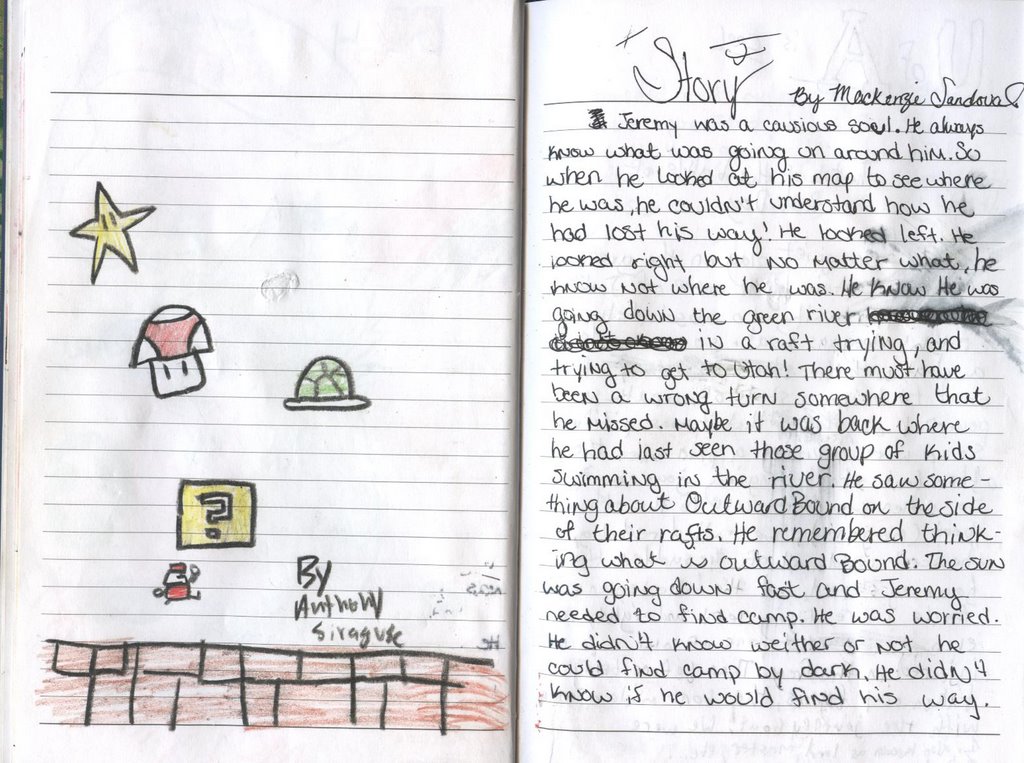 ?
By
Anthony
Siraguse
Story
By Mackenzie Sandoval
Jeremy was a causious soul. He always
know what was going on around him. So
when he looked at his map to see where
he was, he couldn't understand how he
had lost his way! He looked left. He
looked right but no matter what, he
know not where he was. He know He was
going down the green river
in a raft trying, and
trying to get to Utah! There must have
been a wrong turn somewhere that
he missed. Maybe it was back where
he had last seen those group of kids
swimming in the river. He saw some-
thing about Outward Bound on the side
of their rafts. He remembered think-
ing what is outward Bound. The sun
was going down fast and Jeremy
needed to find camp. He was worried.
He didn't know weither or not he
could find camp by dark. He didn't
know if he would find his way.